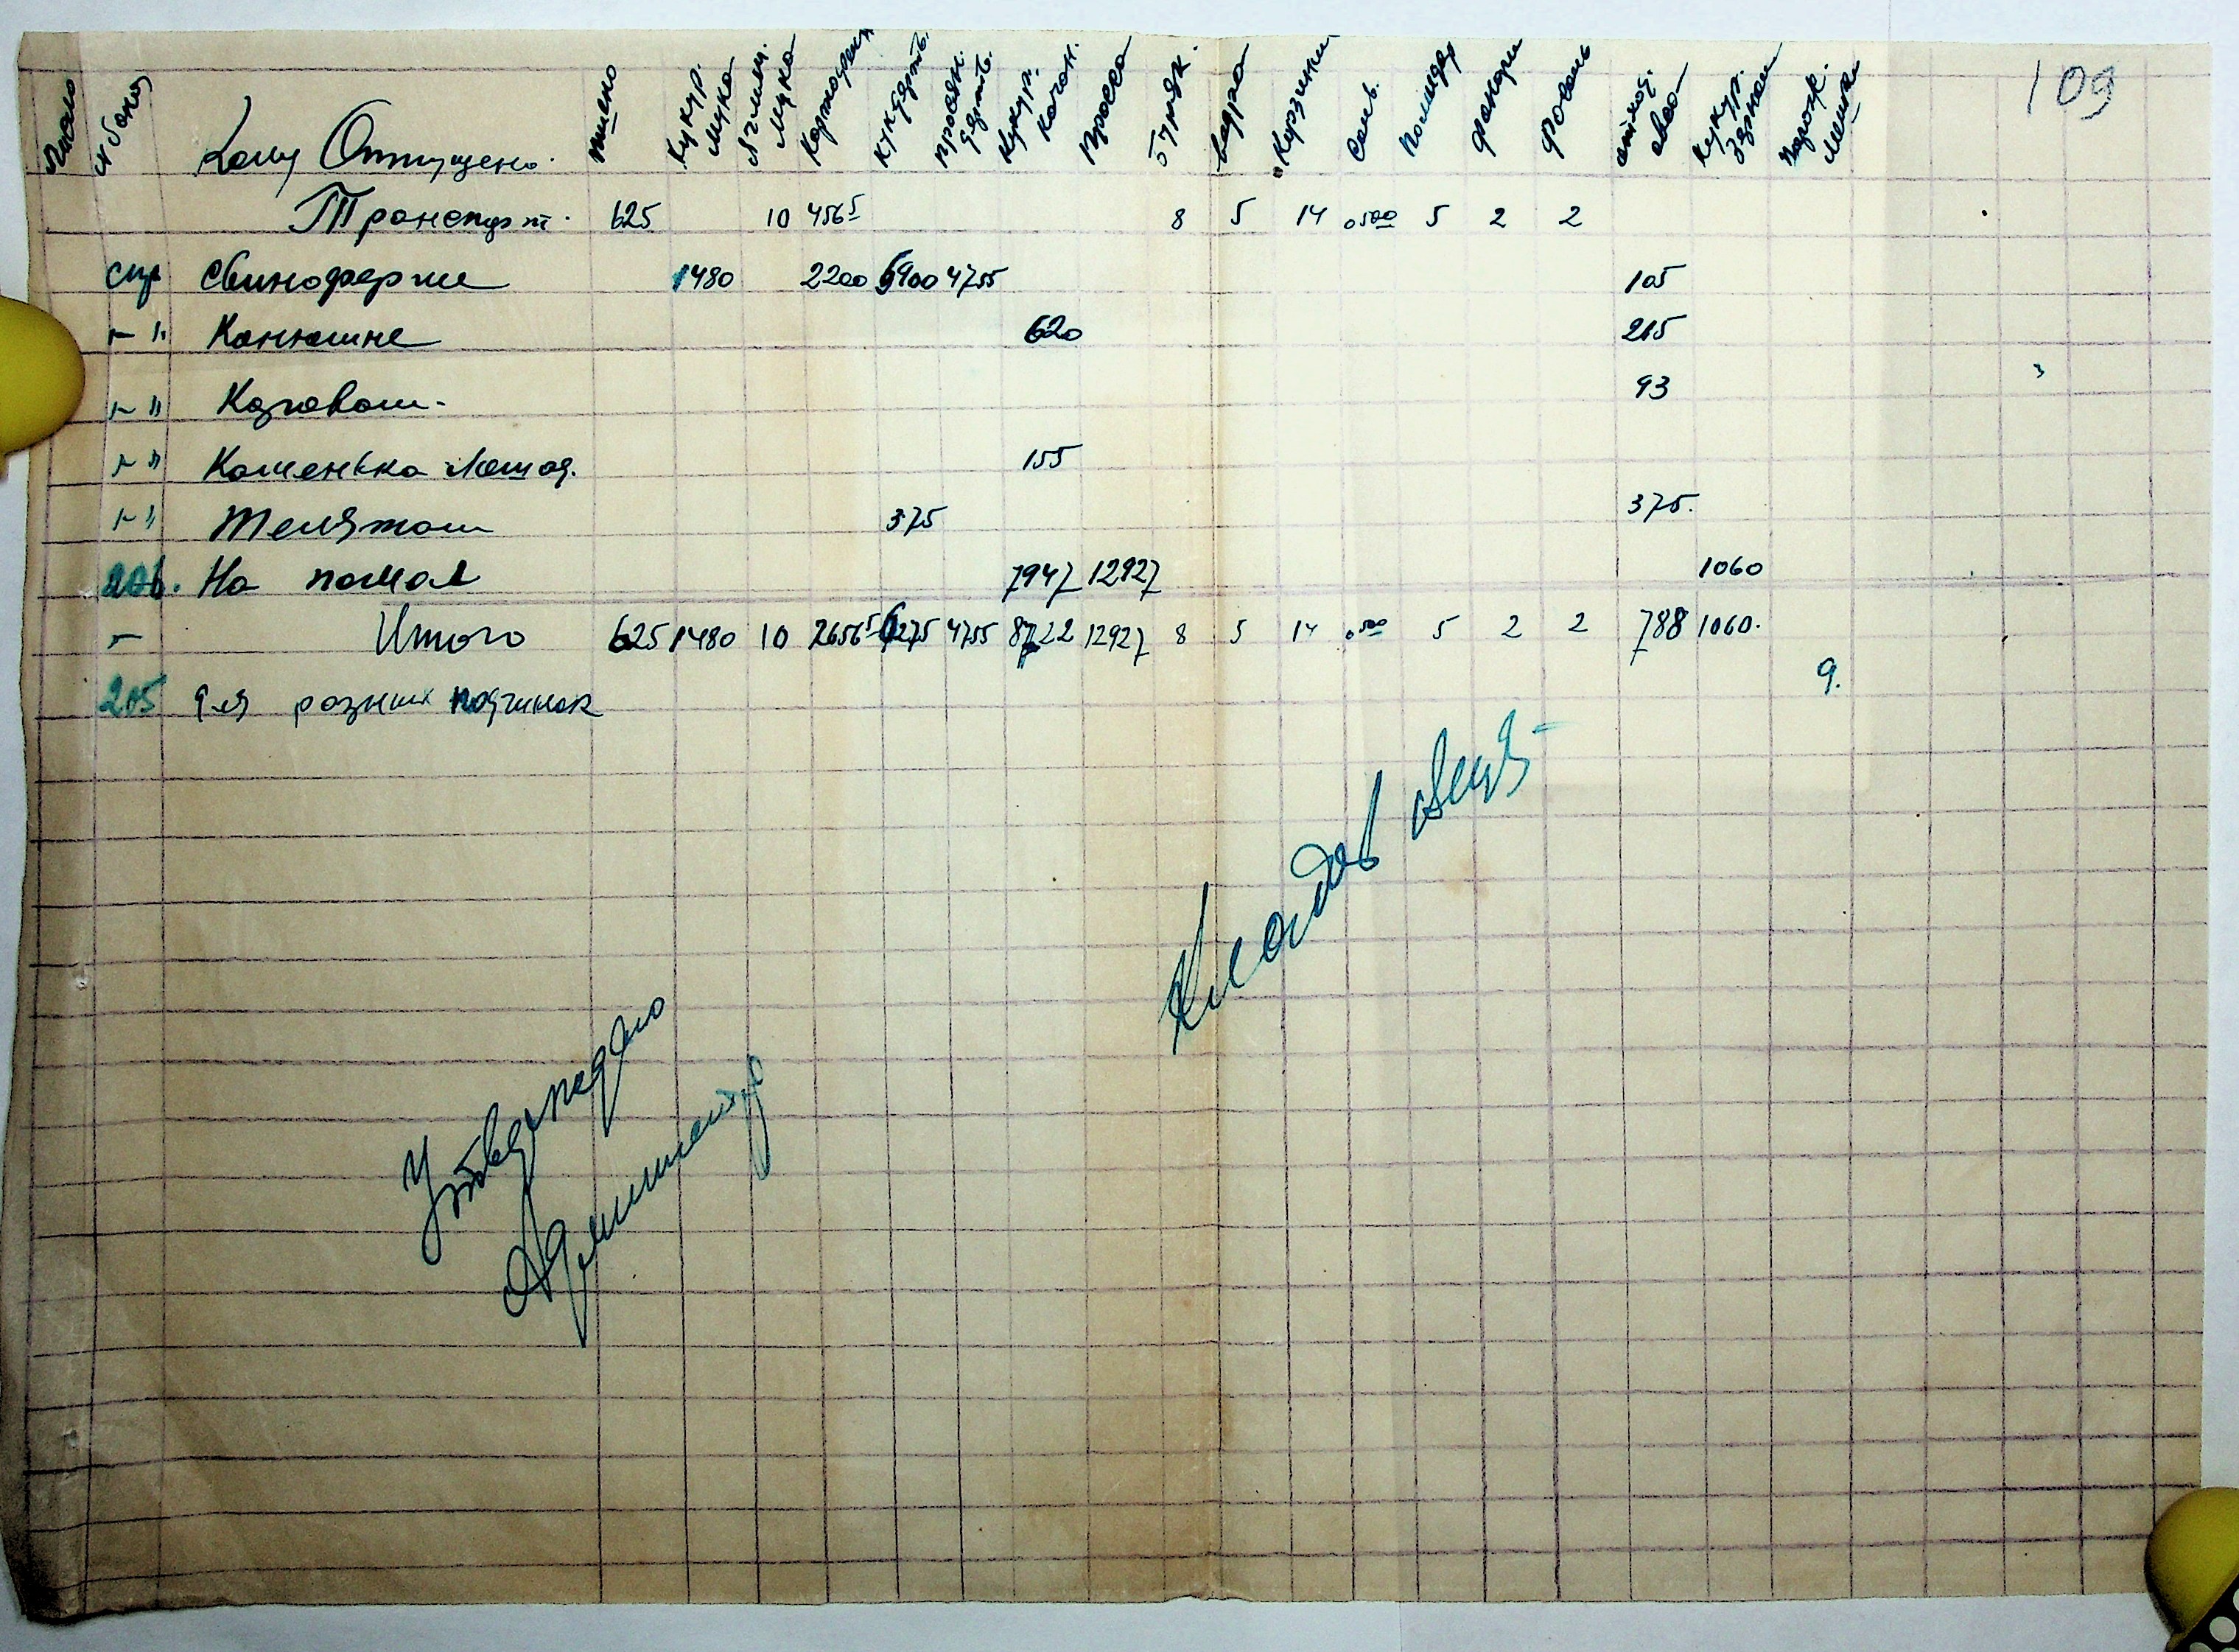 109
Число № бона Кому Отпущено. Пшено Кукур. мука Ячмен. мука Картофеля Кук. дерть. Просян. дерть. Кукур. качан. Проса буряк. ведра Корзины Соль. Помидор Фонари Фовань солома Кукур. зерном порож. мешки
Транспорт. 625 10 456⁵ 8 5 14 0500 5 2 2
спр Свиноферме 1480 2200 5900 4755 105
-"- Конюшне 620 215
-"- Коровам. 93
-"- Каменька лошад. 155
-"- Телятам 375 375.
206. На помол 7947 12927 1060
- Итого 625 1480 10 2656⁵ 6275 4755 8722 12927 8 5 14 0500 5 2 2 788 1060.
215 для разних починок 9.
Кладов
Утверждено